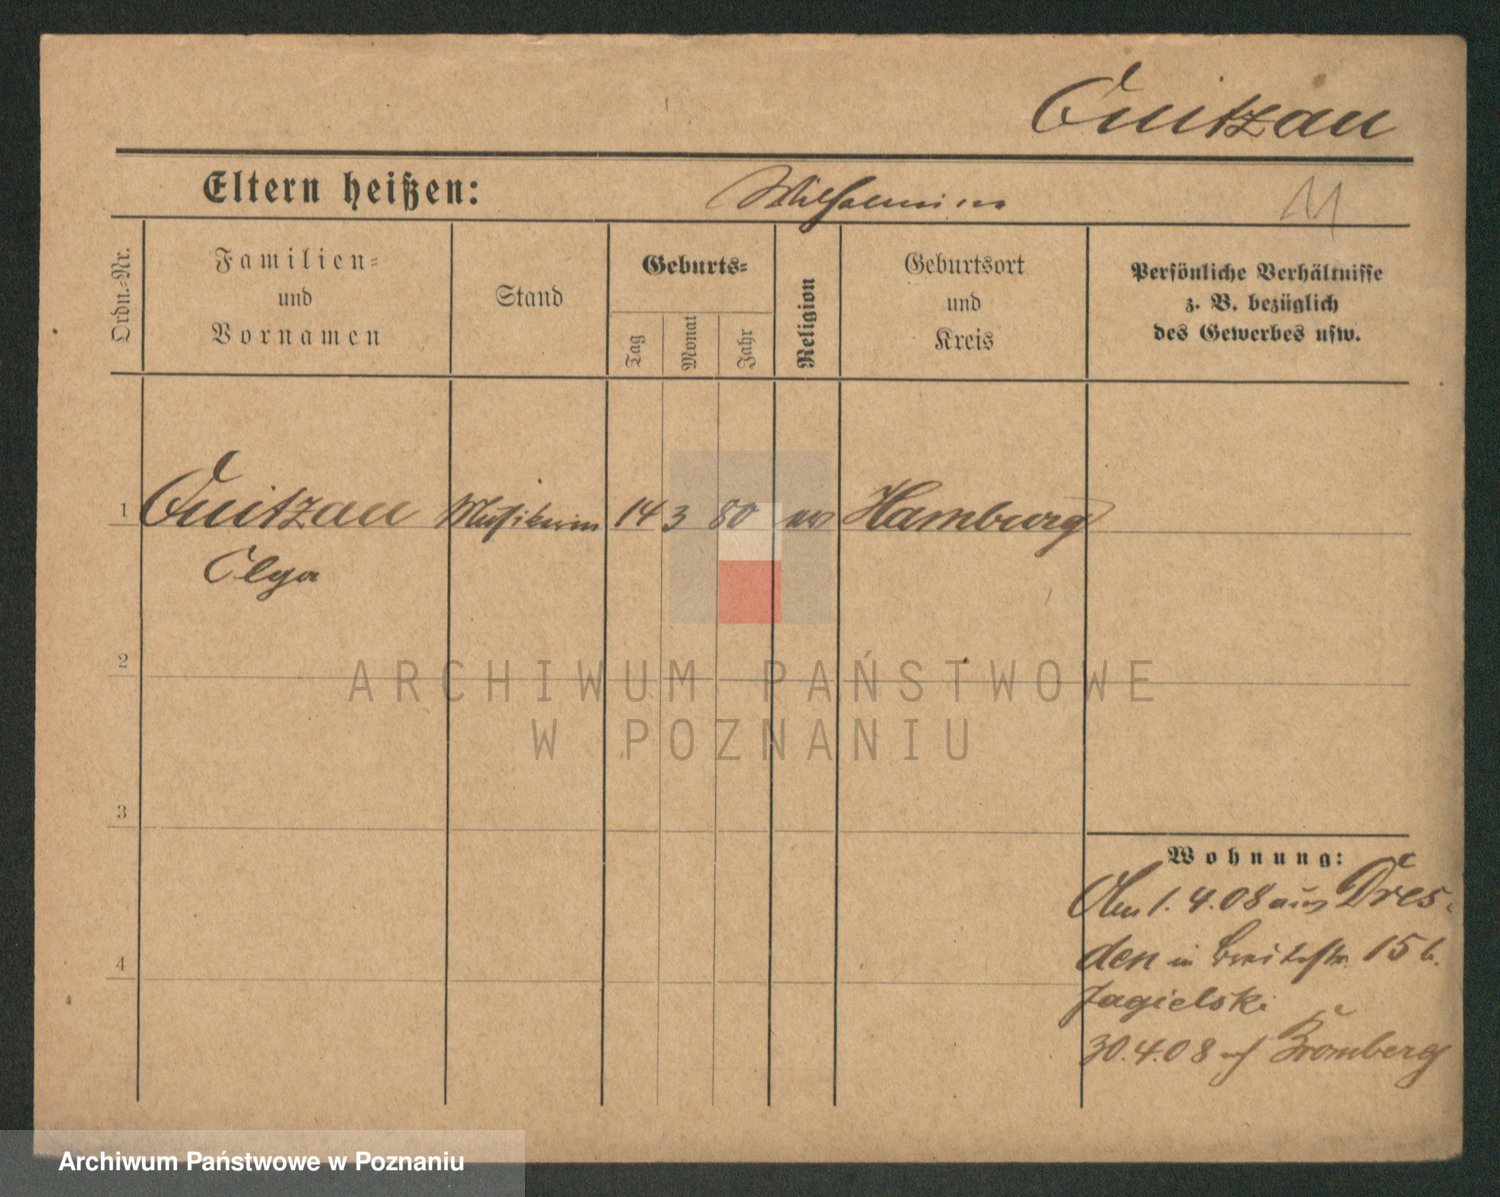 Quitzau
Eltern heißen: Wilhelmine
11
Ordn.=Nr.
Familien=
und
Vornamen
Stand
Geburts=
Tag
Monat
Jahr
Religion
Geburtsort
und
Kreis
Persönliche Verhältnisse
z. B. bezüglich
des Gewerbes usw.
1 Quitzau Musikerin 14 3 80 ev Hamburg
Olga
2
ARCHIWUM PAŃSTWOWE
W POZNANIU
3
4
Wohnung:
Am 1. 4. 08 aus Dres-
den in Breitestr. 15 b.
Jagielski
30. 4. 08 nach Bromberg
Archiwum Państwowe w Poznaniu